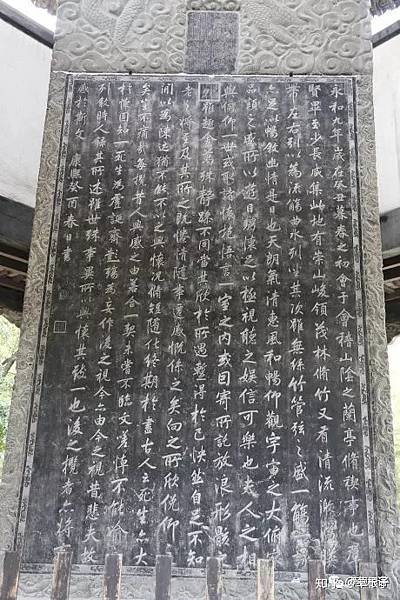 永和九年歲在癸丑暮春之初會于會稽山陰之蘭亭脩稧事也羣
賢畢至少長咸集此地有崇山峻領茂林脩竹又有清流激湍映
帶左右引以為流觴曲水列坐其次雖無絲竹管弦之盛一觴一詠
亦足以暢敘幽情是日也天朗氣清惠風和暢仰觀宇宙之大俯察
品類之盛所以遊目騁懷足以極視聽之娛信可樂也夫人之相
與俯仰一世或取諸懷抱悟言一室之內或因寄所託放浪形骸之
外雖趣舍萬殊靜躁不同當其欣於所遇暫得於己快然自足不知
老之將至及其所之既惓情隨事遷感慨係之矣向之所欣俛仰之
間以為陳迹猶不能不以之興懷況脩短隨化終期於盡古人云死生亦大
矣豈不痛哉每攬昔人興感之由若合一契未嘗不臨文嗟悼不能喻之
於懷固知一死生為虛誕齊彭殤為妄作後之視今亦由今之視昔悲夫故
列敘時人錄其所述雖世殊事異所以興懷其致一也後之攬者亦將有
感於斯文 康熙癸酉春日書
知乎